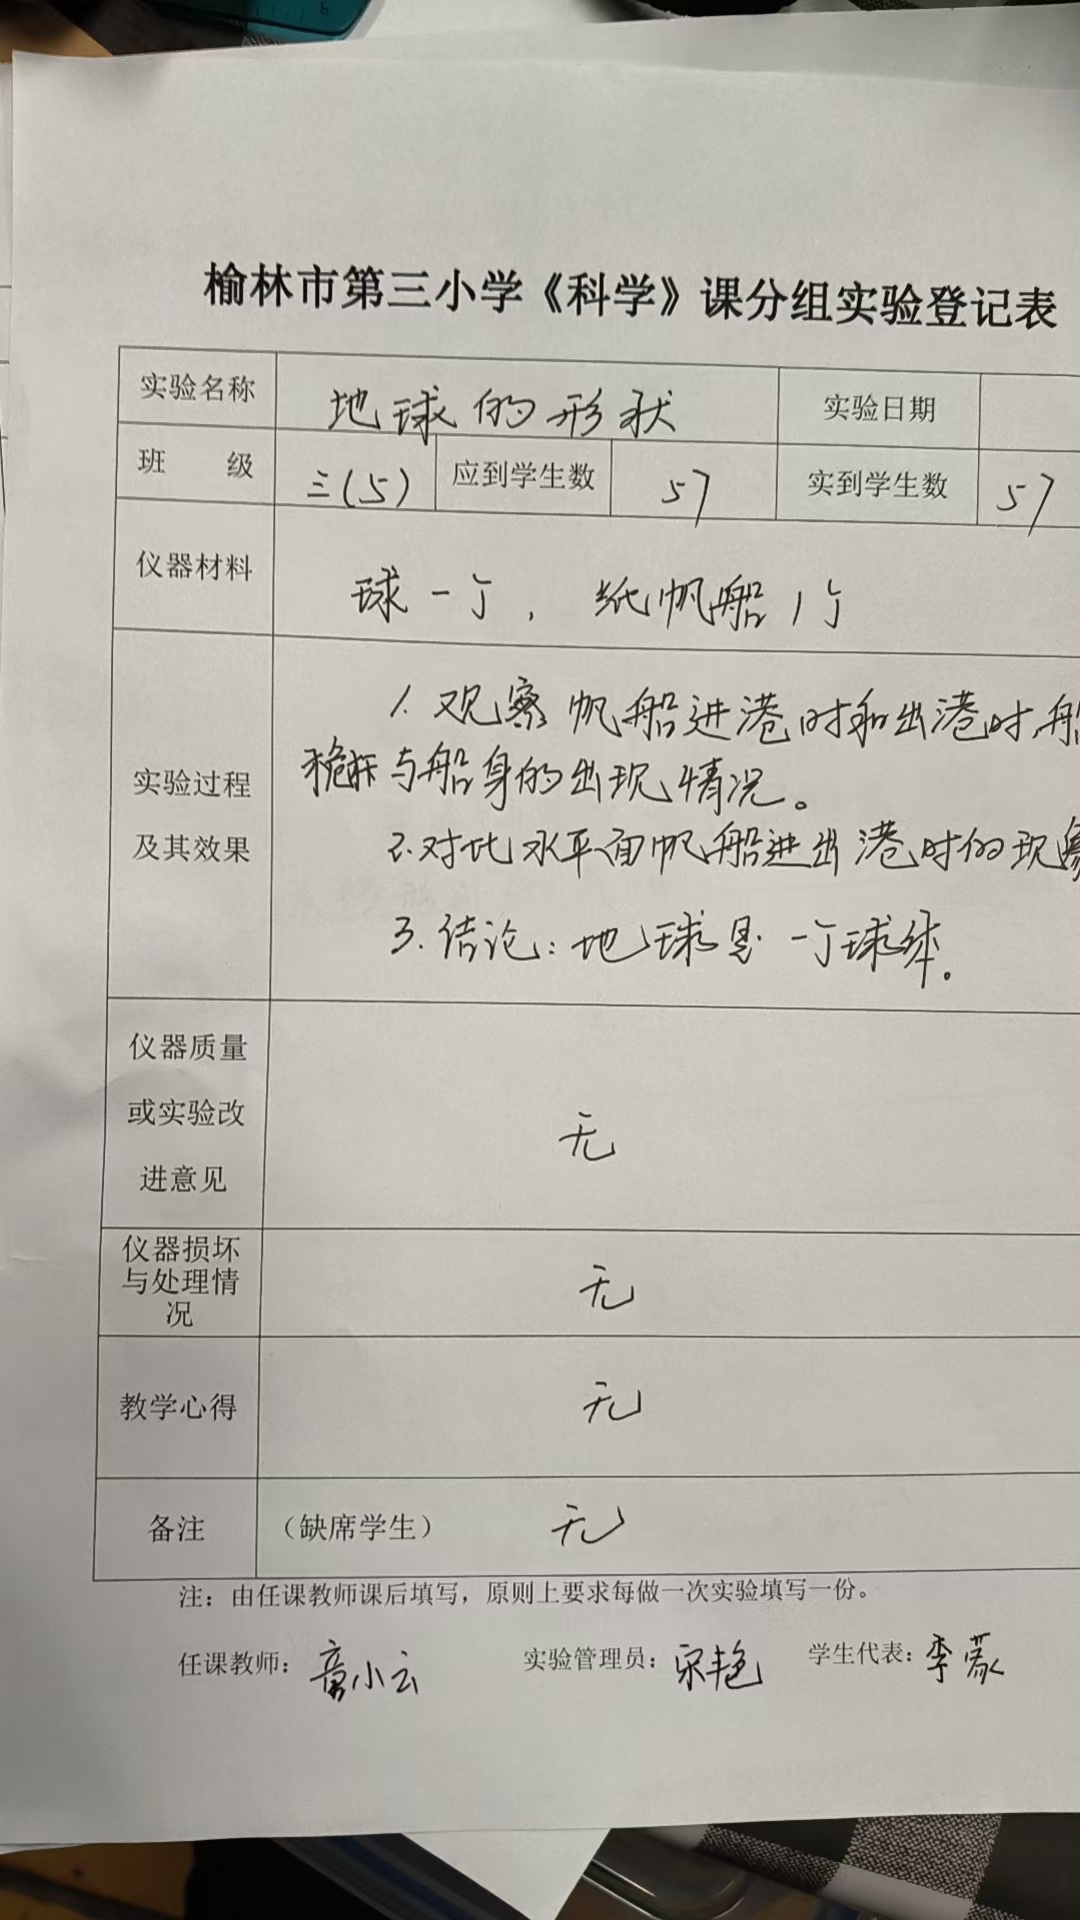 榆林市第三小学《科学》课分组实验登记表
实验名称 地球的形状 实验日期
班 级 三(5) 应到学生数 57 实到学生数 57
仪器材料 球一个, 纸帆船1个
实验过程
及其效果
1.观察帆船进港时和出港时,船
桅杆与船身的出现情况。
2.对比水平面帆船进出港时的现象
3.结论:地球是一个球体.
仪器质量
或实验改
进意见
无
仪器损坏
与处理情
况
无
教学心得 无
备注 (缺席学生) 无
注:由任课教师课后填写,原则上要求每做一次实验填写一份。
任课教师: 小云 实验管理员: 宋艳 学生代表: 李蒙